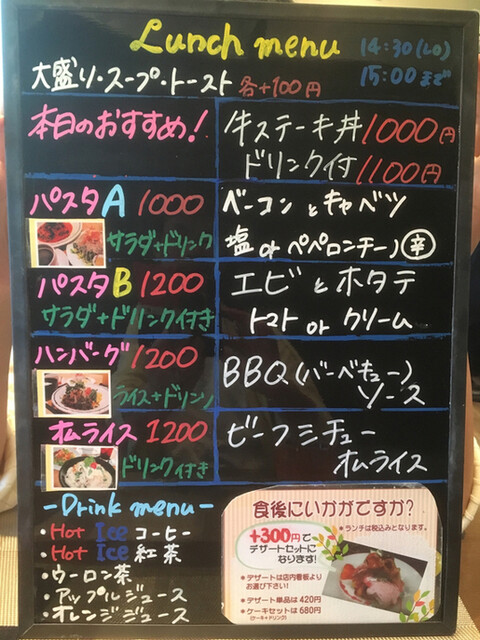 Lunch menu 14:30(LO)
15:00まで
大盛り・スープ・トースト 各+100円
本日のおすすめ! 牛ステーキ丼 1000円
ドリンク付 1100円
パスタA 1000 ベーコンとキャベツ
サラダ+ドリンク 塩orペペロンチーノ 辛
パスタB 1200 エビとホタテ
サラダ+ドリンク付き トマトorクリーム
ハンバーグ 1200 BBQ(バーベキュー)
ライス+ドリンク ソース
オムライス 1200 ビーフシチュー
ドリンク付き オムライス
-Drink menu-
・Hot Ice コーヒー
・Hot Ice 紅茶
・ウーロン茶
・アップルジュース
・オレンジジュース
食後にいかがですか?
※ランチは税込みとなります。
+300円で
デザートセットに
なります!
※デザートは店内看板より
お選び下さい!
※デザート単品は420円
※ケーキセットは680円
(ケーキ+ドリンク)